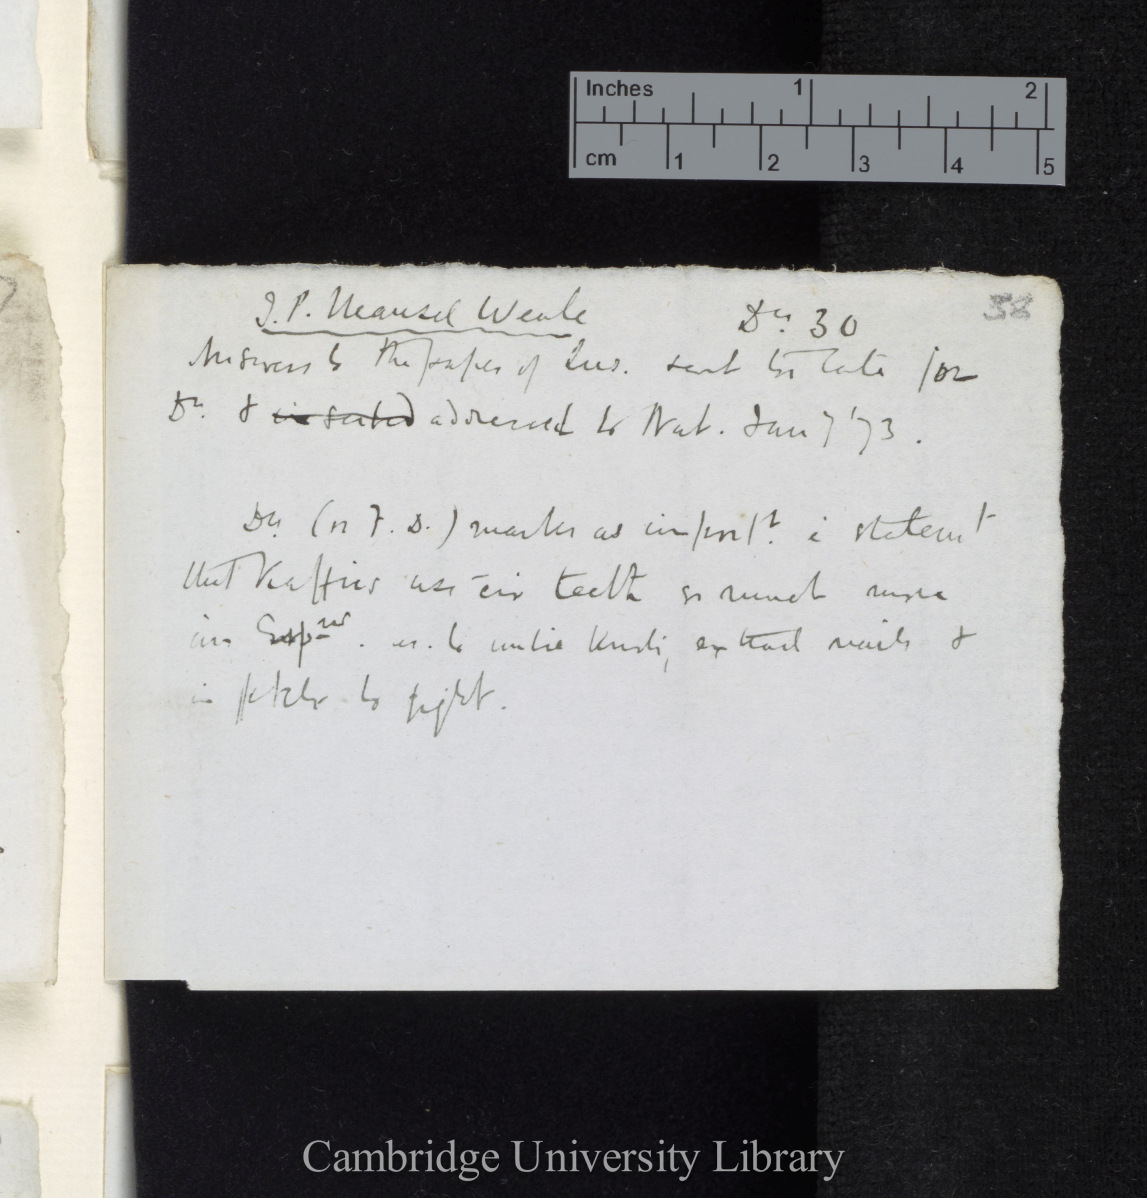 Inches 1 2
cm 1 2 3 4 5
J. P. Mansel Weale Dn 30
38
Answers to the paper of Ques. sent too late for
Dn. & inserted addressed to Nat. Jan 7 '73.
Dn (or F. D.) marks as import. a statemt
that Kaffirs use their teeth so much more
than Europns. as. to untie knots, extract nails &
to fight.
Cambridge University Library